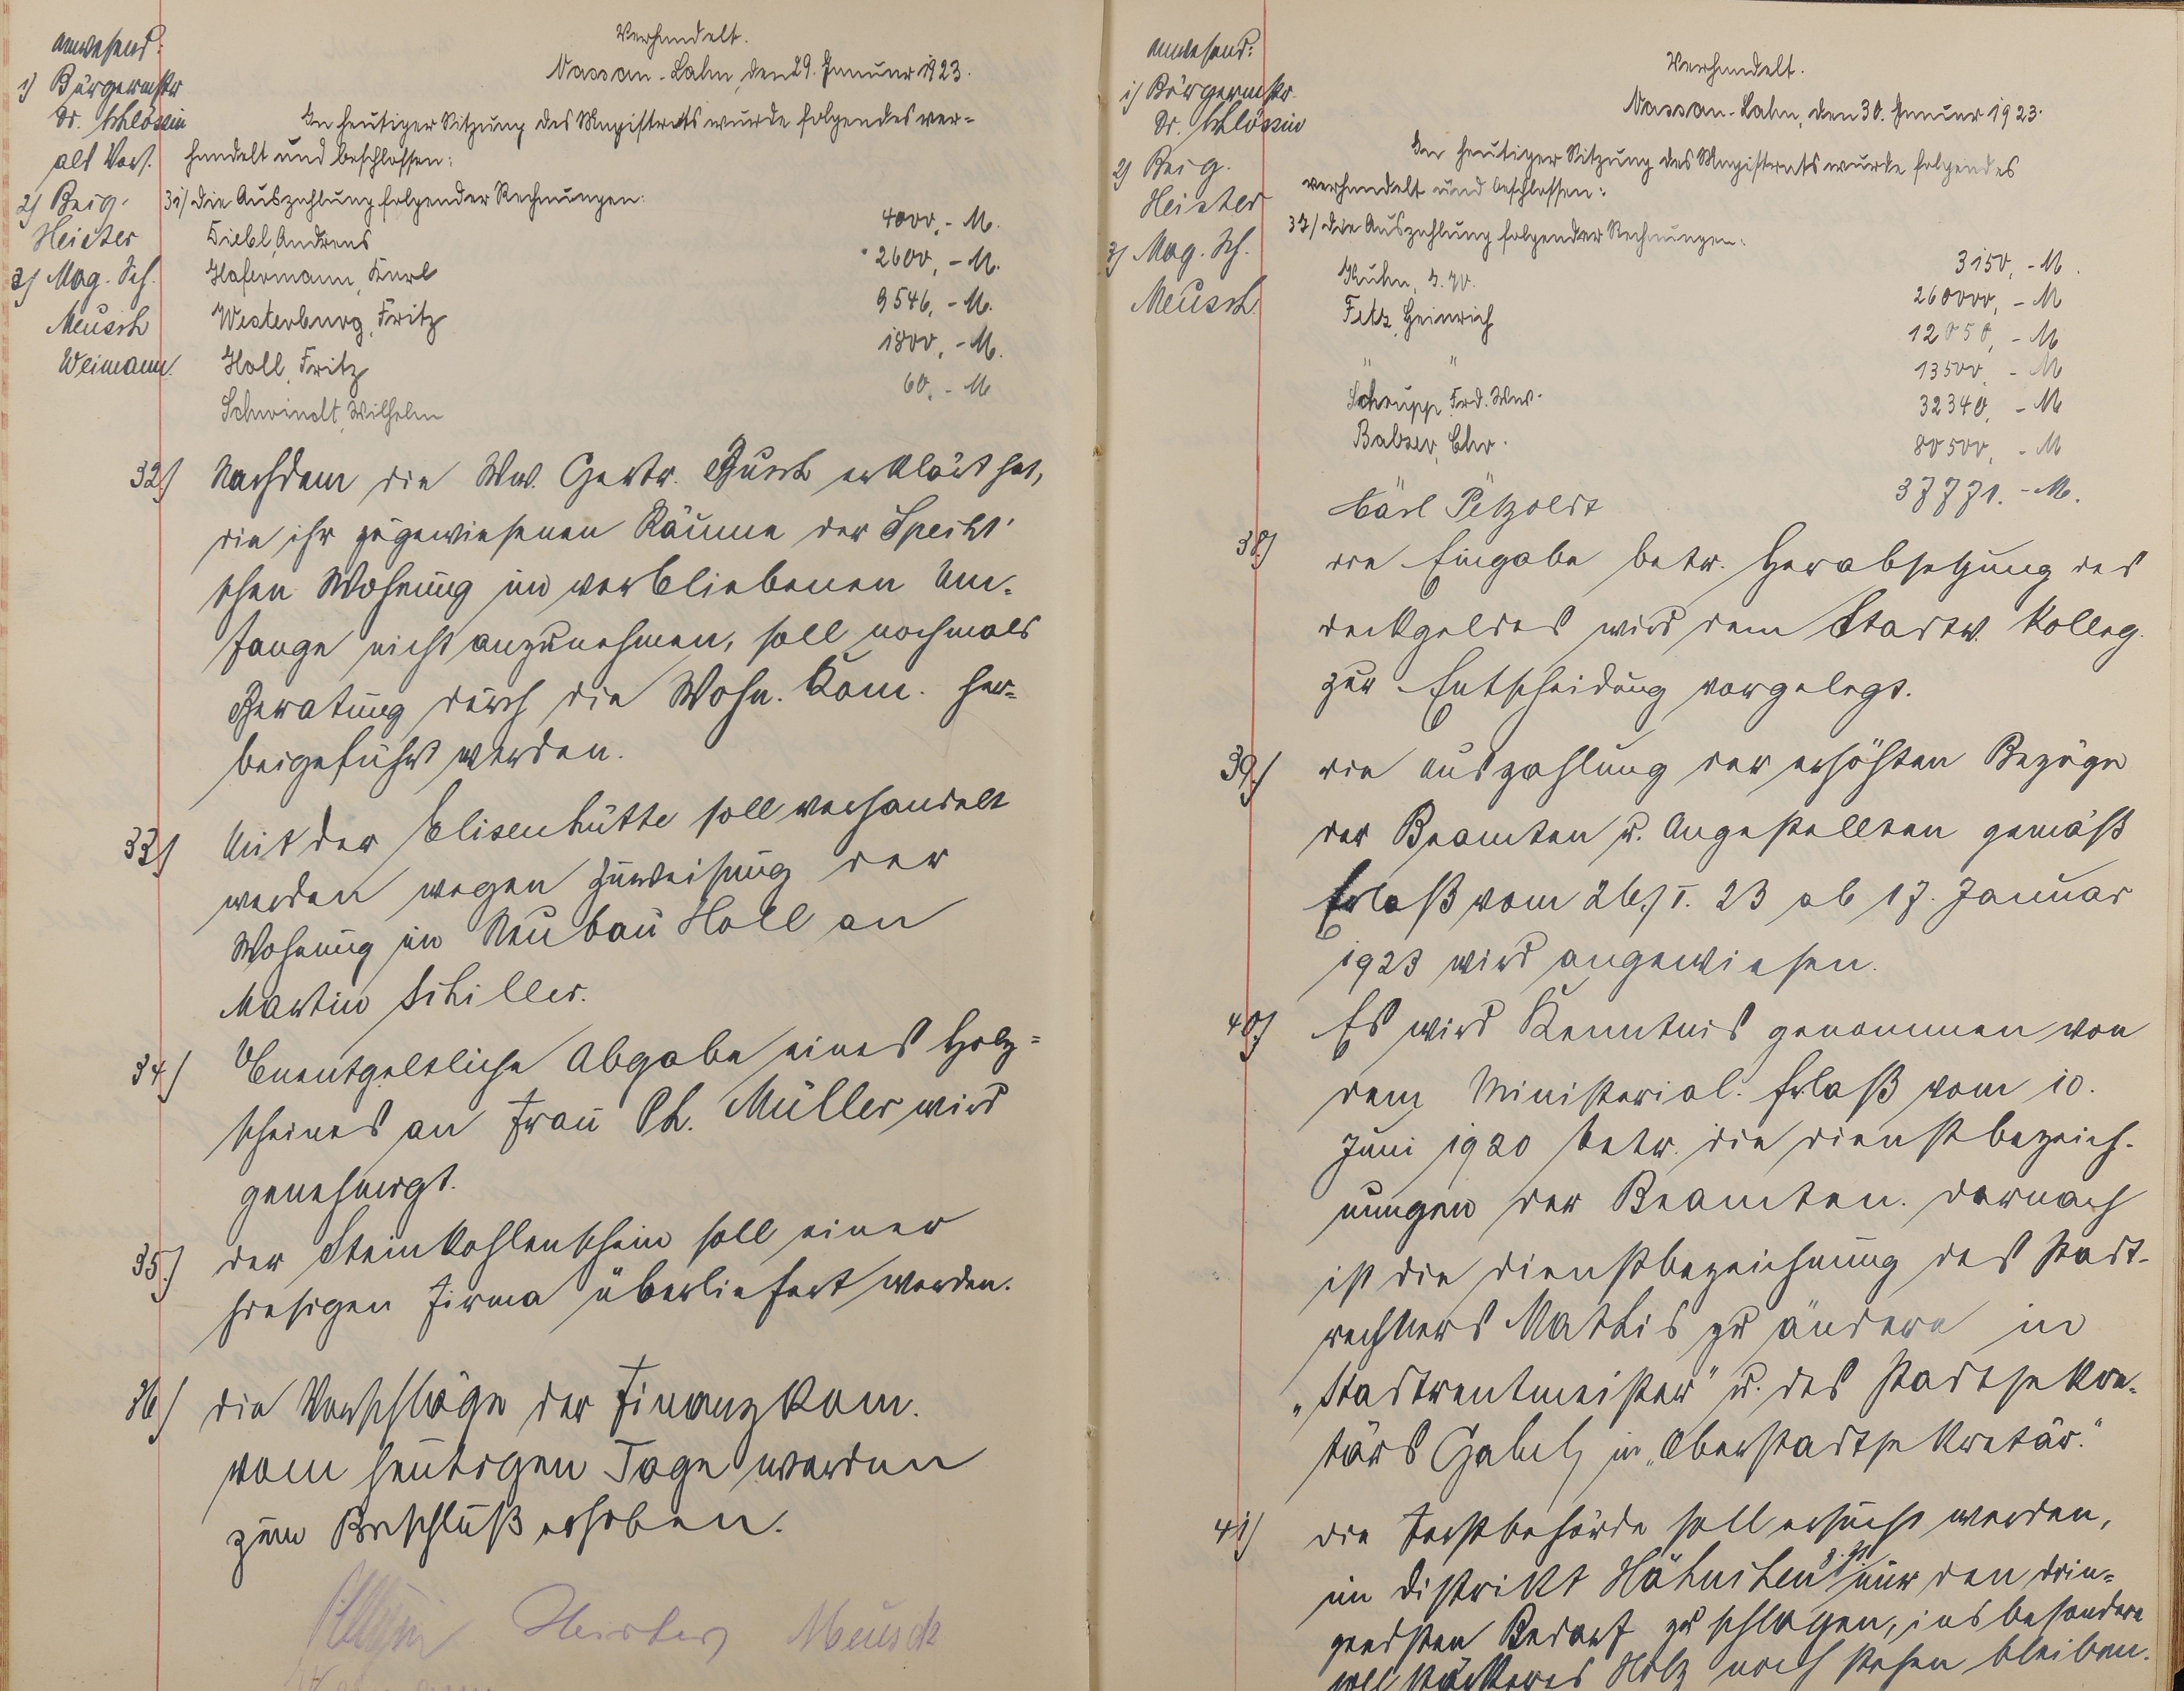 Anwesend:
1) Bürgermstr
Dr. Schlössin
als Vors.
2) Beig.
Heister
3) Mag. Sch.
Meusch
Weimann.
Verhandelt.
Nassau-Lahn, den 29. Januar 1923.
In heutiger Sitzung des Magistrats wurde folgendes ver-
handelt und beschlossen:
31) die Auszahlung folgender Rechnungen:
Diebl, Andreas 4000,- M.
Hafermann, Karl 2600,- M.
Westerburg, Fritz 9546,- M.
Holl, Fritz 1800,- M.
Schwindt, Wilhelm 60,- M
32) Nachdem die Ww. Gertr. Busch erklärt hat,
die ihr zugewiesenen Räume der Specht'
schen Wohnung im verbliebenen Um-
fange nicht anzunehmen, soll nochmals
Beratung durch die Wohn. Kom. her-
beigeführt werden.
33) Mit der Elisenhütte soll verhandelt
werden wegen Zuweisung der
Wohnung im Neubau Holl an
Martin Schiller.
34) Unentgeltliche Abgabe eines Holz-
scheines an Frau Ph. Müller wird
genehmigt.
35) der Steinkohlenschein soll einer
hiesigen Firma überliefert werden.
36) die Vorschläge der Finanzkom.
vom heutigen Tage werden
zum Beschluß erhoben.
Schlössin Heister Meusch
Anwesend:
1) Bürgermstr.
Dr. Schlössin
2) Beig.
Heister
3) Mag. Sch.
Meusch
Verhandelt.
Nassau-Lahn, den 30. Januar 1923.
In heutiger Sitzung des Magistrats wurde folgendes
verhandelt und beschlossen:
37) die Auszahlung folgender Rechnungen:
Kuhn, 3150,- M.
Fetz, Heinrich 260000,- M
" " 12050,- M
Schrupp, Frd. Ww. 13500,- M
Balzer, Chr. 32340,- M
80500,- M
Carl Petzoldt 37771.- M.
38) die Eingabe betr. Herabsetzung des
deckgeldes wird dem Stadtv. Kolleg.
zur Entscheidung vorgelegt.
39) die Auszahlung der erhöhten Bezüge
der Beamten u. Angestellten gemäß
Erlaß vom 26./I. 23 ab 17. Januar
1923 wird angewiesen.
40) Es wird Kenntnis genommen von
dem Ministerial. Erlaß vom 10.
Juni 1920 betr. die dienstbezeich-
nungen der Beamten. darnach
ist die dienstbezeichnung des Stadt-
rechners Mathis zu ändern in
"Stadtrentmeister" u. des Stadtsekre-
tärs in "Oberstadtsekretär."
41) die Forstbehörde soll ersucht werden,
im Distrikt Hähnchen z. Zt. nur den drin-
gendsten Bedarf zu schlagen, insbesondere
soll stärkeres Holz noch stehen bleiben.